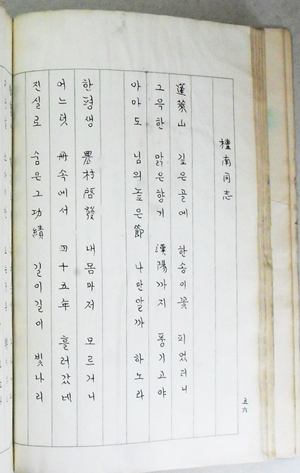 槿南同志
蓬萊山 깊은골에 한송이꽃 피었더니
그윽한 맑은향기 漢陽까지 풍기고야
아마도 님의높은節 나만알까 하노라
한평생 農村啓發 내몸마저 모르거니
어느덧 冊속에서 四十五年 흘러갔네
진실로 숨은그功績 길이길이 빛나리
五六